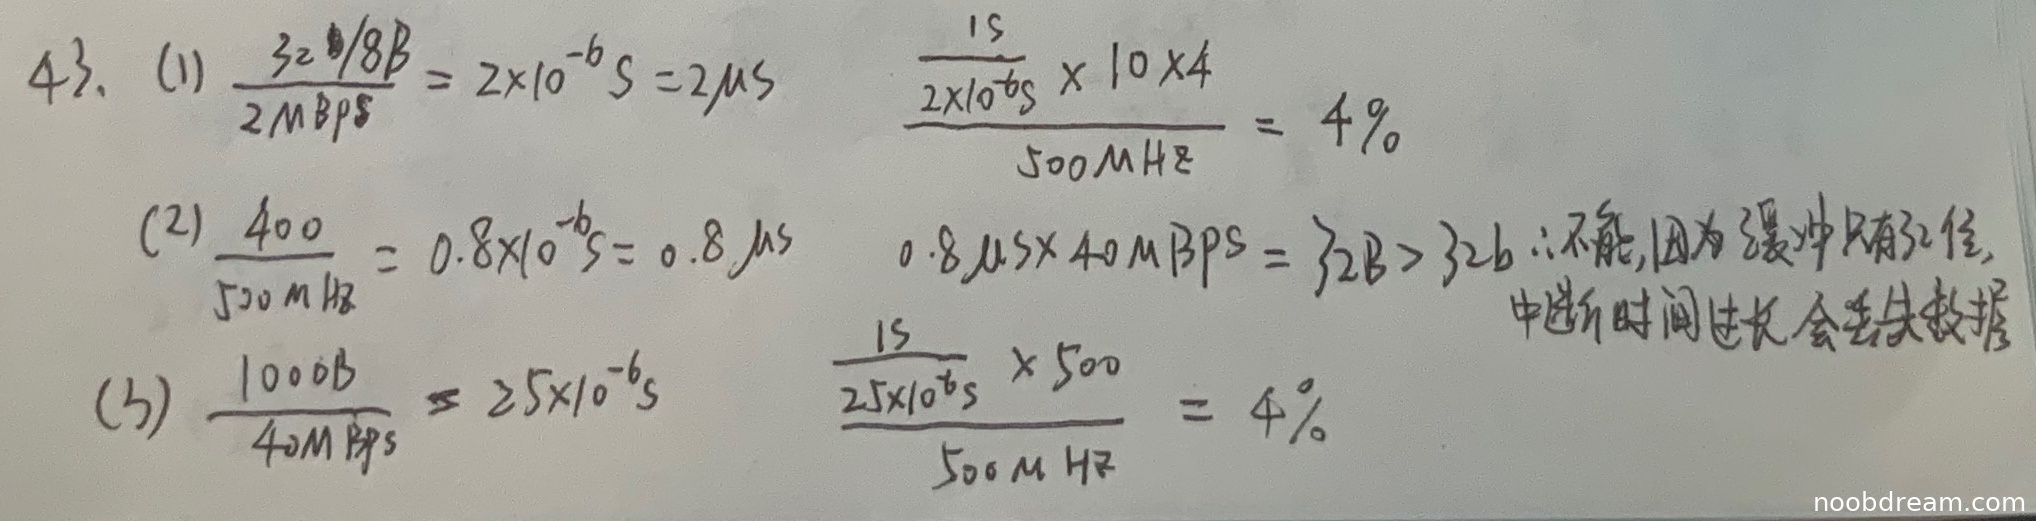 43. (1) \frac{32b/8B}{2MBPS} = 2×10^{-6}S = 2μs \frac{\frac{1S}{2×10^{-6}S} × 10×4}{500MHZ} = 4%
(2) \frac{400}{500MHZ} = 0.8×10^{-6}S = 0.8μs 0.8μs×40MBPS = 32B > 32b ∴不能,因为缓冲只有32位,
中断时间过长会丢失数据
(3) \frac{1000B}{40MBPS} = 25×10^{-6}S \frac{\frac{1S}{25×10^{-6}S} × 500}{500MHZ} = 4%
noobdream.com